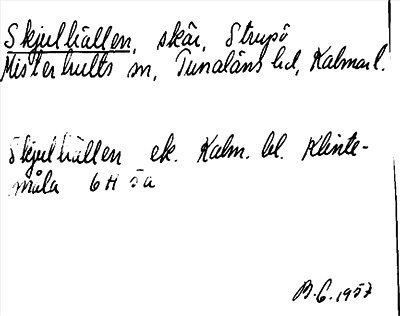 Skjulhällen, skär, Strupö
Misterhults sn, Tunaläns hd, Kalmar l.
Skjulhällen ek. Kalm. bl. Klinte-
måla 6H 5a
B.G. 1957